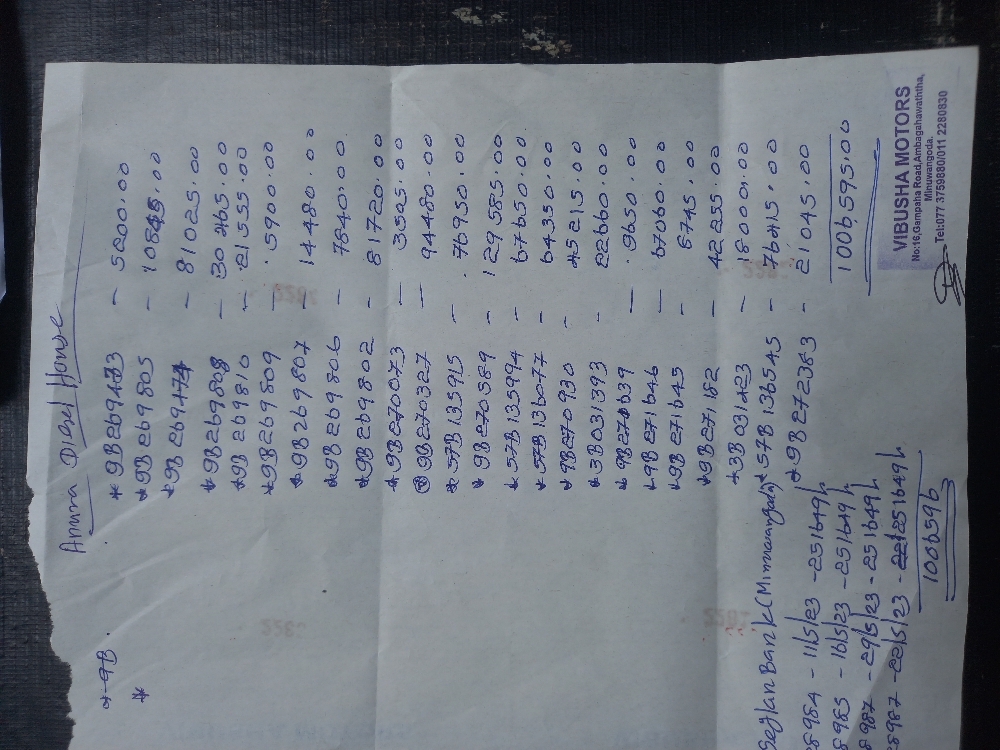 Anura Diesel House
* 9B
*
* 9B269473 — 5200.00
* 9B269805 — 10845.00
* 9B269474 — 81025.00
* 9B269808 — 30465.00
* 9B269810 — 21555.00
* 9B269809 — 5900.00
* 9B269807 — 14480.00
* 9B269806 — 7840.00
* 9B269802 — 81720.00
* 9B270073 — 3505.00
* 9B270327 — 94480.00
* 57B135915 — 76950.00
* 9B270589 — 129585.00
* 57B135994 — 67650.00
* 57B136077 — 64350.00
* 9B270930 — 45215.00
* 3B031393 — 22660.00
* 9B271639 — 9650.00
* 9B271646 — 67060.00
* 9B271645 — 6745.00
* 9B271182 — 42255.00
* 3B031423 — 18000.00
* 57B136545 — 76415.00
* 9B272383 — 21045.00
1006,595.00
Seylan Bank (Minuwangoda)
8984 - 11/5/23 - 251649/=
8985 - 16/5/23 - 251649/=
8987 - 29/5/23 - 251649/=
8987 - 22/5/23 - 251649/=
1006596
VIBUSHA MOTORS
No:16,Gampaha Road,Ambagahawaththa,
Minuwangoda.
Tel:077 3759880/011 2280830